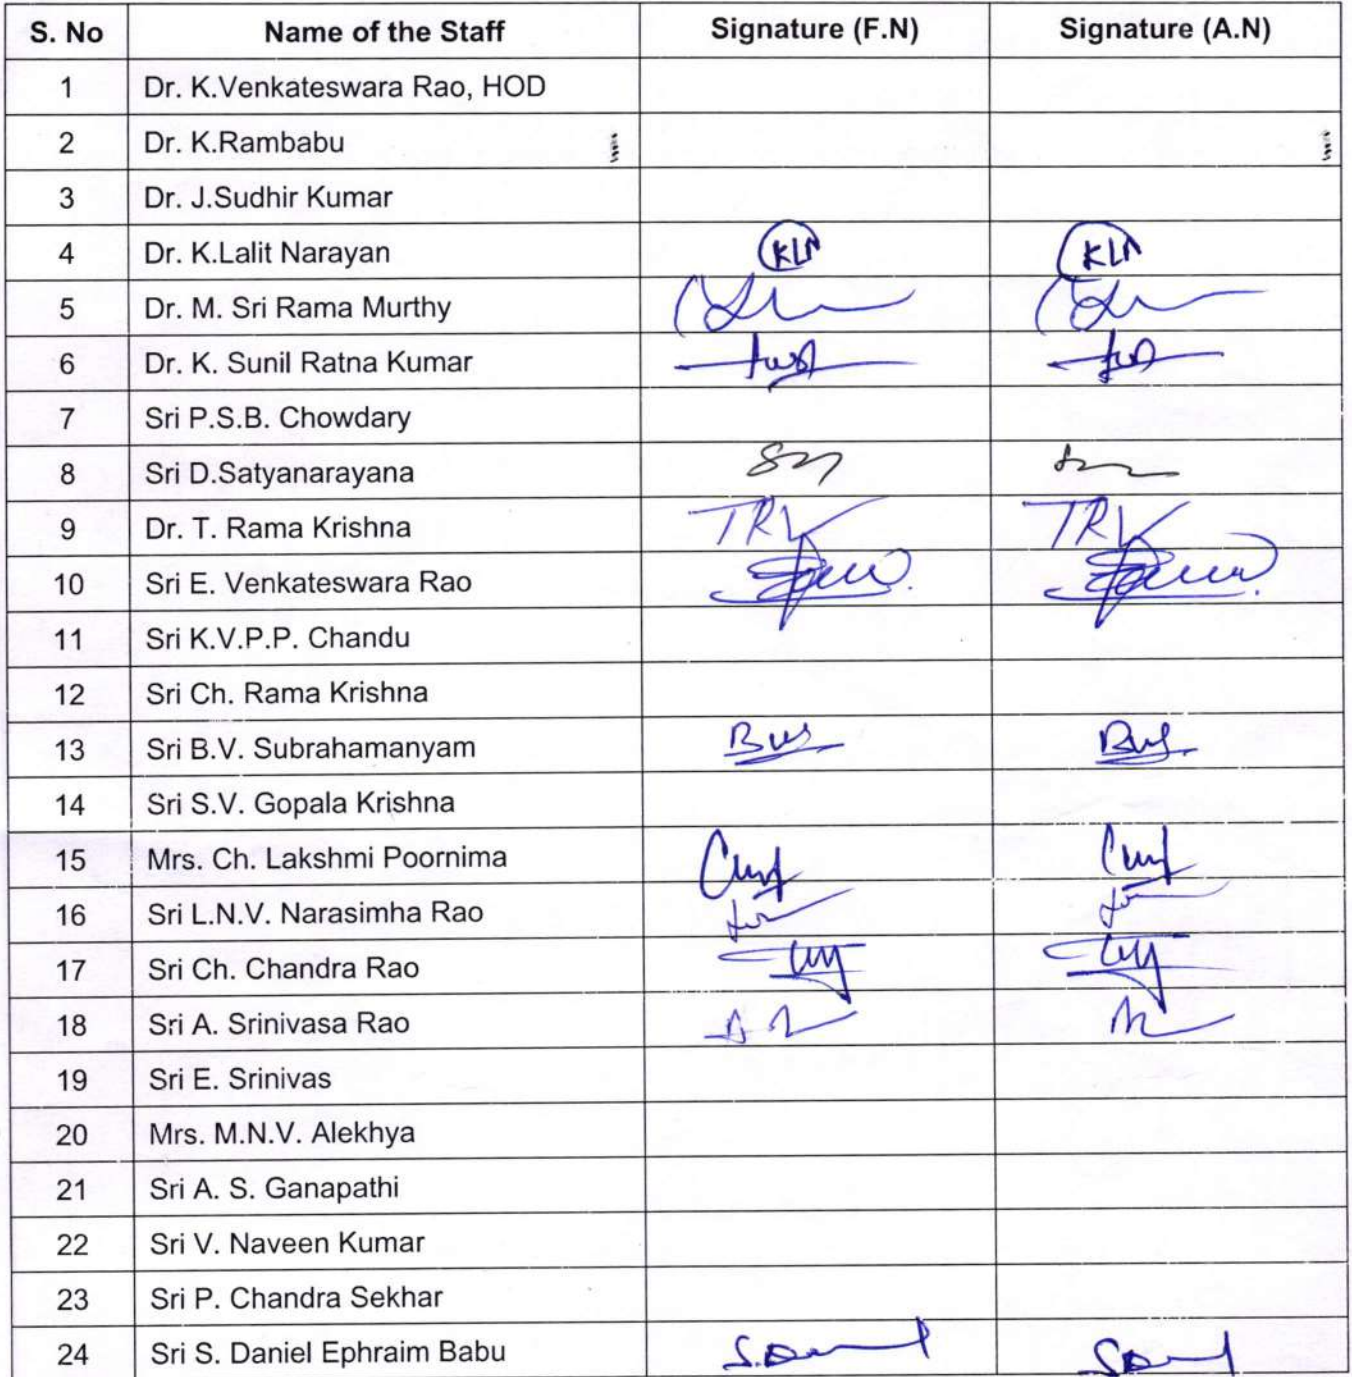 S. No Name of the Staff Signature (F.N) Signature (A.N)
1 Dr. K.Venkateswara Rao, HOD
2 Dr. K.Rambabu
3 Dr. J.Sudhir Kumar
4 Dr. K.Lalit Narayan KLN KLN
5 Dr. M. Sri Rama Murthy
6 Dr. K. Sunil Ratna Kumar
7 Sri P.S.B. Chowdary
8 Sri D.Satyanarayana
9 Dr. T. Rama Krishna TRK TRK
10 Sri E. Venkateswara Rao
11 Sri K.V.P.P. Chandu
12 Sri Ch. Rama Krishna
13 Sri B.V. Subrahamanyam
14 Sri S.V. Gopala Krishna
15 Mrs. Ch. Lakshmi Poornima
16 Sri L.N.V. Narasimha Rao
17 Sri Ch. Chandra Rao
18 Sri A. Srinivasa Rao
19 Sri E. Srinivas
20 Mrs. M.N.V. Alekhya
21 Sri A. S. Ganapathi
22 Sri V. Naveen Kumar
23 Sri P. Chandra Sekhar
24 Sri S. Daniel Ephraim Babu